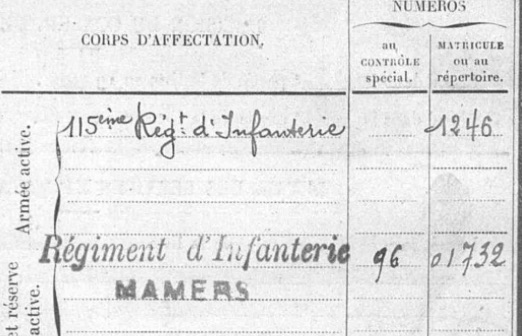 NUMÉROS
CORPS D'AFFECTATION.
au
CONTRÔLE
spécial.
MATRICULE
ou au
répertoire.
Armée active.
115ème Régt. d'Infanterie
1246
et réserve
active.
Régiment d'Infanterie
96
01732
MAMERS